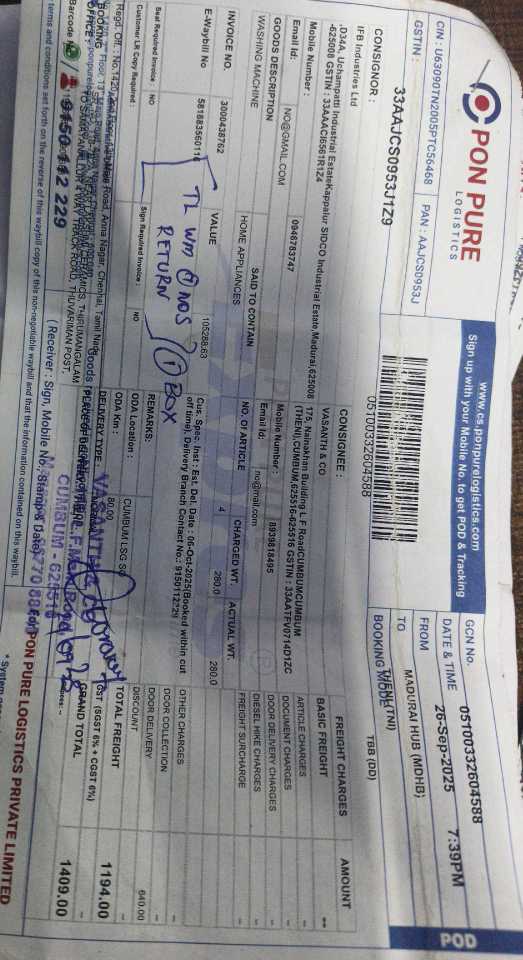 PON PURE
LOGISTICS
CIN : U63090TN2005PTC56468 PAN : AAJCS0953J
GSTIN : 33AAJCS0953J1Z9
www.cs.ponpurelogistics.com
Sign up with your Mobile No. to get POD & Tracking
05T00332604588
GCN No. 05T00332604588
DATE & TIME 26-Sep-2025 7:39PM
FROM MADURAI HUB (MDHB)
TO THENI(TNI)
BOOKING MODE TBB (DD)
POD
CONSIGNOR :
IFB Industries Ltd
,D34A, Uchampatti Industrial EstateKappalur SIDCO Industrial Estate,Madurai,625008
-625008 GSTIN : 33AAACI6561R1Z4
Mobile Number : 0946783747
Email Id: NO@GMAIL.COM
CONSIGNEE :
VASANTH & CO
172, Nainakhan Building L.F RoadCUMBUMCUMBUM
(THENI),CUMBUM,625516-625516 GSTIN : 33AATFV0714D1ZC
Mobile Number : 8939818495
Email Id: no@mail.com
GOODS DESCRIPTION SAID TO CONTAIN NO. OF ARTICLE CHARGED WT. ACTUAL WT.
WASHING MACHINE HOME APPLIANCES 4 280.0 280.0
INVOICE NO. VALUE
3000438762 105288.63
E-Waybill No
Cus. Spec. Inst : Est. Del. Date : 06-Oct-2025(Booked within cut
off time). Delivery Branch Contact No.:
TL WM ① NOS ① BOX
RETURN
Seal Required Invoice : NO Sign Required Invoice : NO
Customer LR Copy Required :
REMARKS:
ODA Location : CUMBUM
ODA Km : 80.00
DELIVERY TYPE :
FREIGHT CHARGES AMOUNT
BASIC FREIGHT --
ARTICLE CHARGES
DOCUMENT CHARGES
DOOR DELIVERY CHARGES
DIESEL HIKE CHARGES
FREIGHT SURCHARGE
OTHER CHARGES
DOOR COLLECTION
DOOR DELIVERY 640.00
DISCOUNT
TOTAL FREIGHT 1194.00
GST (SGST 6% + CGST 6%)
GRAND TOTAL 1409.00
BOOKING
OFFICE :
9150 112 229
CUMBUM - 625516
Barcode No
(Receiver : Sign, Mobile No., Stamp & Date)
For PON PURE LOGISTICS PRIVATE LIMITED
terms and conditions set forth on the reverse of this waybill copy of this non-negotiable waybill and that the information contained on this waybill.